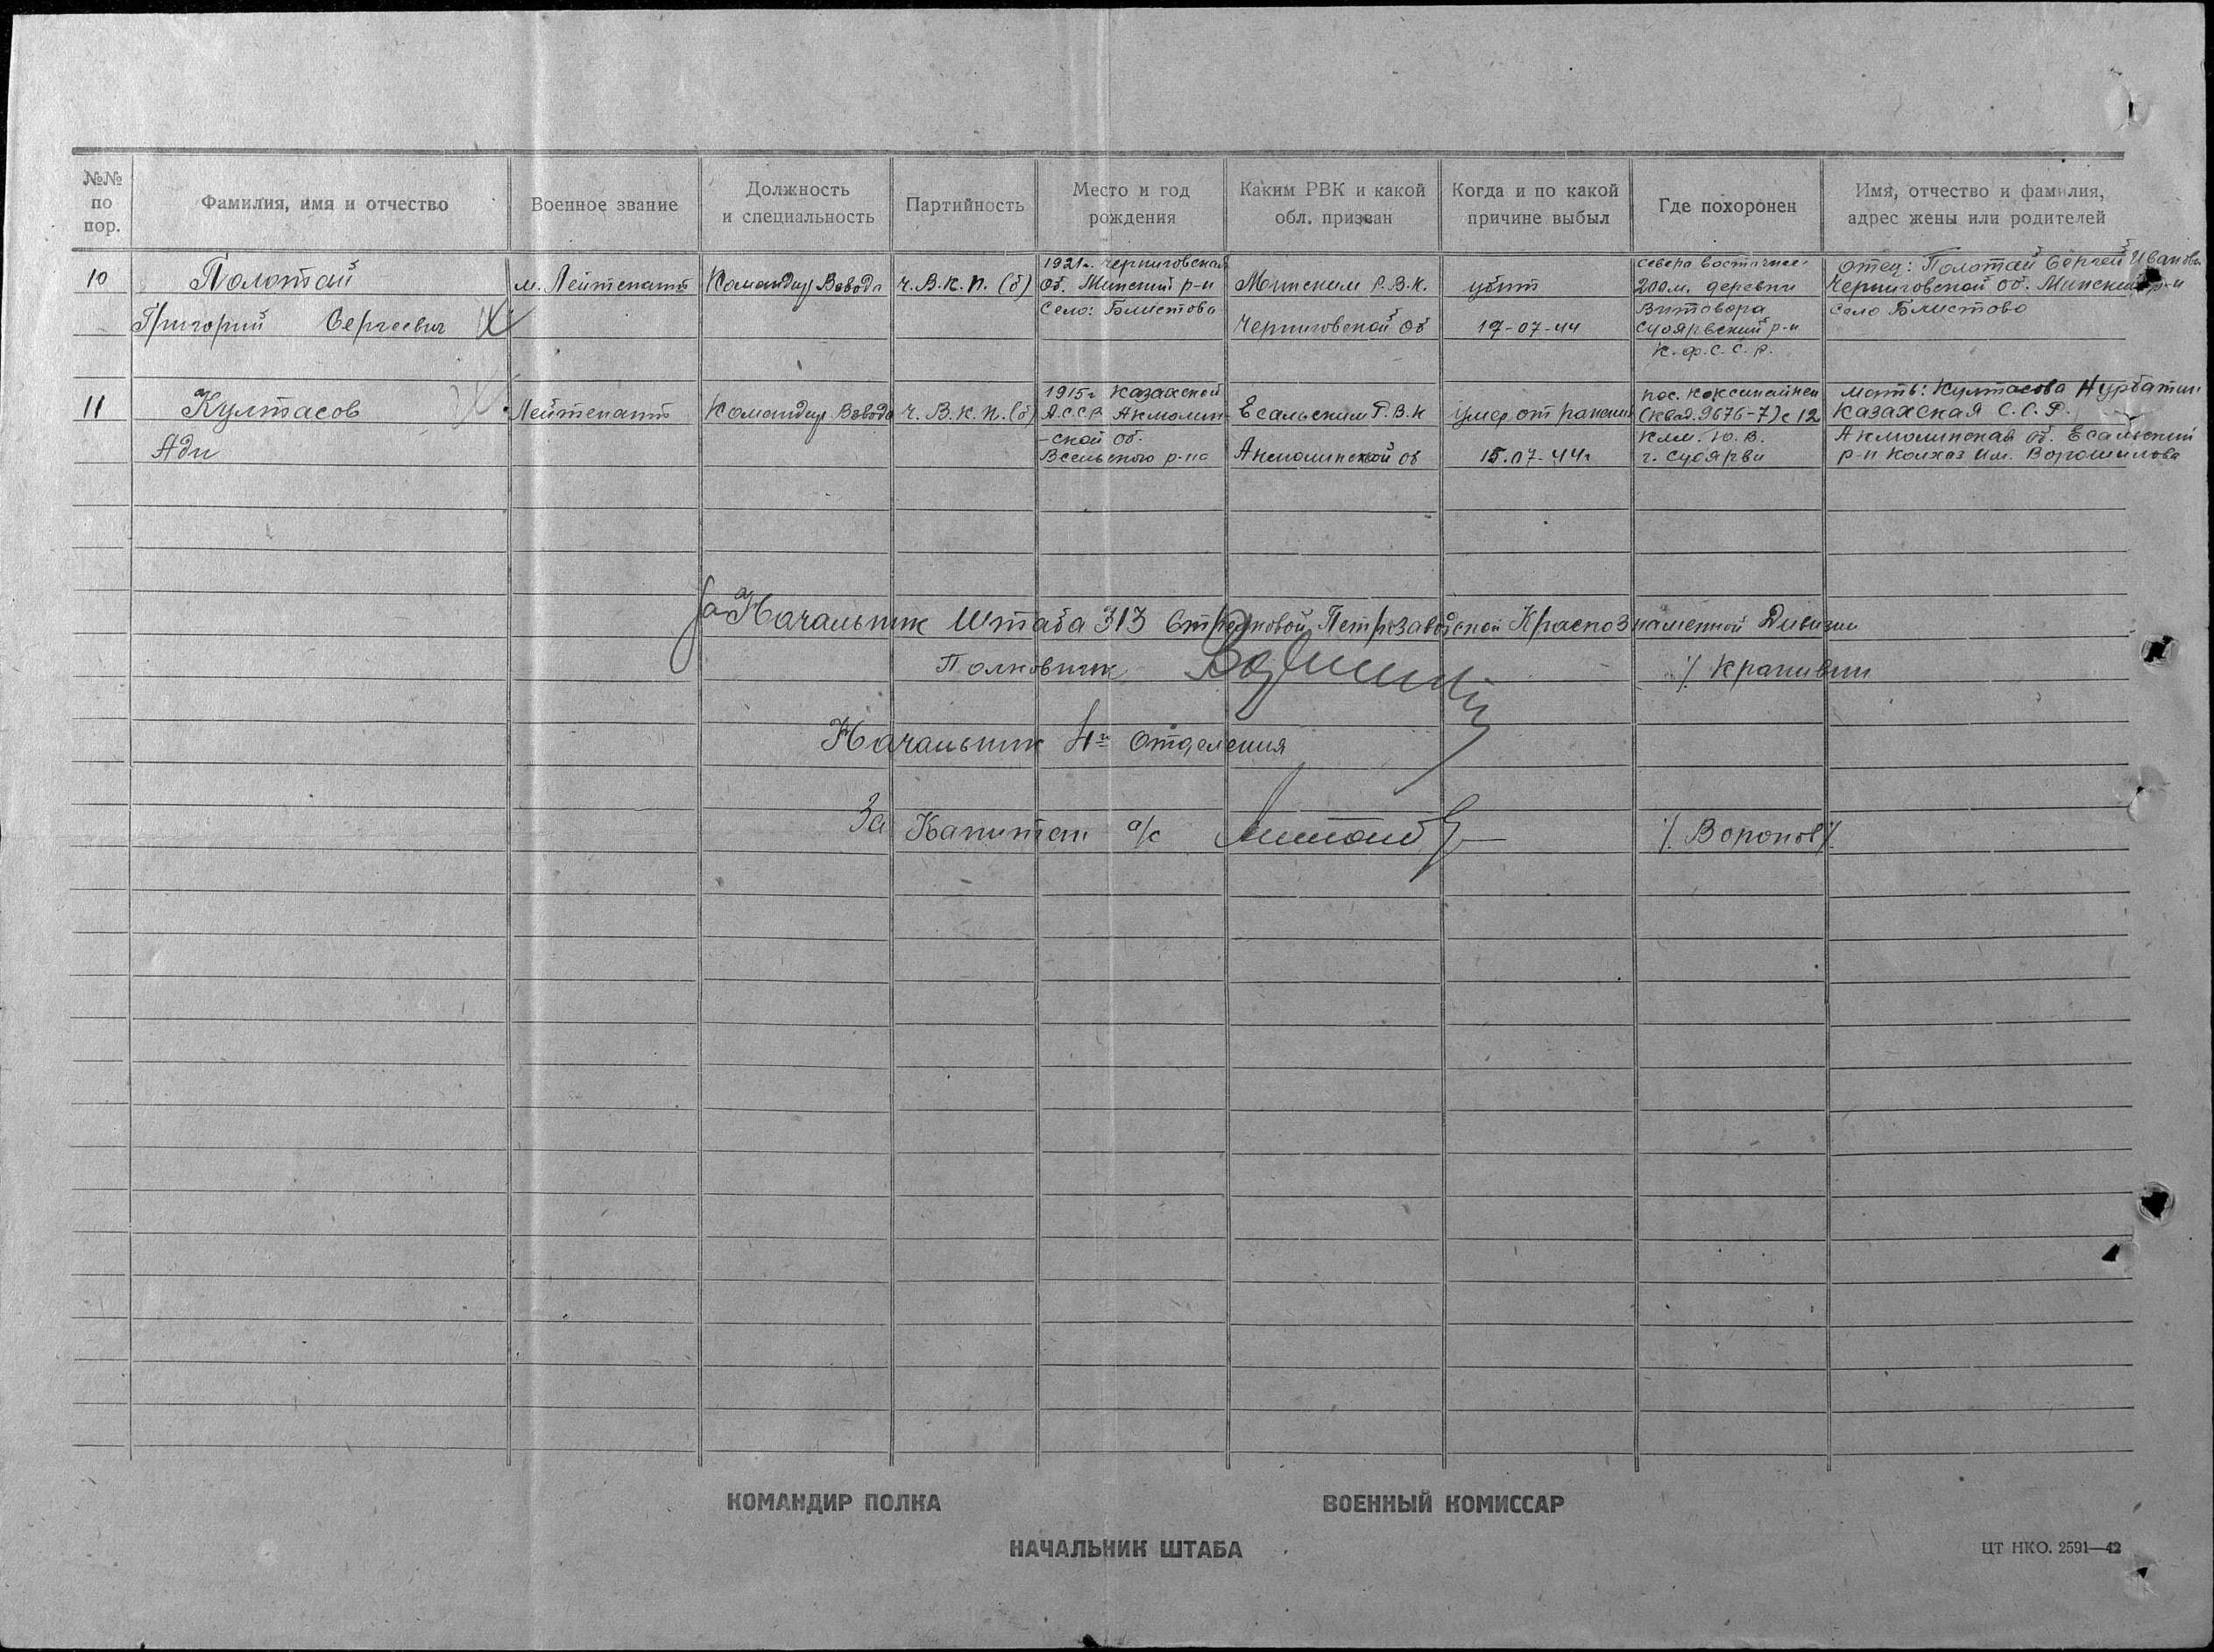 №№ по пор.
Фамилия, имя и отчество
Военное звание
Должность и специальность
Партийность
Место и год рождения
Каким РВК и какой обл. призван
Когда и по какой причине выбыл
Где похоронен
Имя, отчество и фамилия, адрес жены или родителей
10
Полотай
Григорий Сергеевич
м. Лейтенант
Командир Взвода
ч. В.К.П. (б)
1921г. Черниговская
Об. Минский р-н
Село: Блистово
Минским Р.В.К.
Черниговской Об
убит
19-07-44
Севера восточнее
200 м. деревни
Витавора
Суоярвский р-н
К.Ф.С.С.Р.
Отец: Полотай Сергей Иванови
Черниговской об. Минский р-н
Село Блистово
11
Култасов
Ади
Лейтенант
Командир Взвода
ч. В.К.П. (б)
1915г Казахской
А.С.С.Р. Акмолин-
-ской Об.
Есальским Р.В.К
Акмолинской Об
умер от ранения
15.07-44г
пос.
(квад. 9676-7) с 12
клм. Ю.В.
г. Суоярви
Мать: Култасова
Казахская С.С.Р.
Акмолинская Об. Есальский
р-н Колхоз Им. Ворошилова
За Начальник Штаба 313 Стрелковой Петрозаводской Краснознаменной Дивизии
Полковник /Крапивин
Начальник 4го Отделения
За Капитан а/с /Воронов/
КОМАНДИР ПОЛКА
ВОЕННЫЙ КОМИССАР
НАЧАЛЬНИК ШТАБА
ЦТ НКО. 2591—42